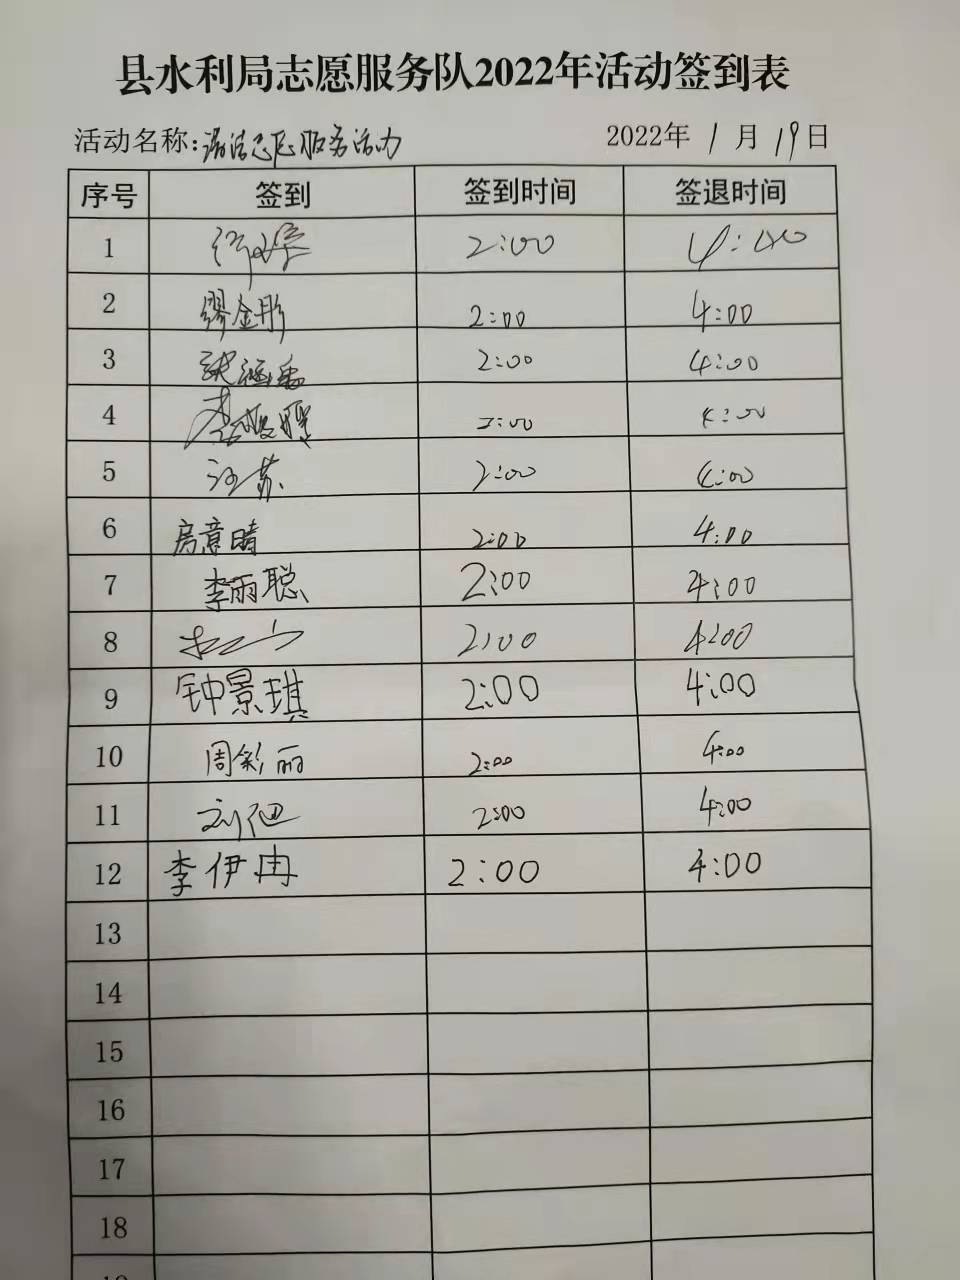 县水利局志愿服务队2022年活动签到表
活动名称:清洁志愿服务活动 2022年1月19日
序号 签到 签到时间 签退时间
1 2:00 4:40
2 缪金彤 2:00 4:00
3 2:00 4:00
4 2:00 4:00
5 江苏 2:00 4:00
6 房意晴 2:00 4:00
7 李雨聪 2:00 4:00
8 2:00 4:00
9 钟景琪 2:00 4:00
10 周彩丽 2:00 4:00
11 2:00 4:00
12 李伊冉 2:00 4:00
13
14
15
16
17
18